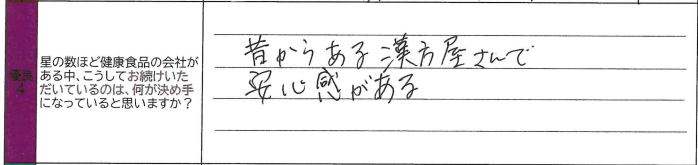 優良
4
星の数ほど健康食品の会社が
ある中、こうしてお続けいた
だいているのは、何が決め手
になっていると思いますか？
昔からある漢方屋さんで
安心感がある